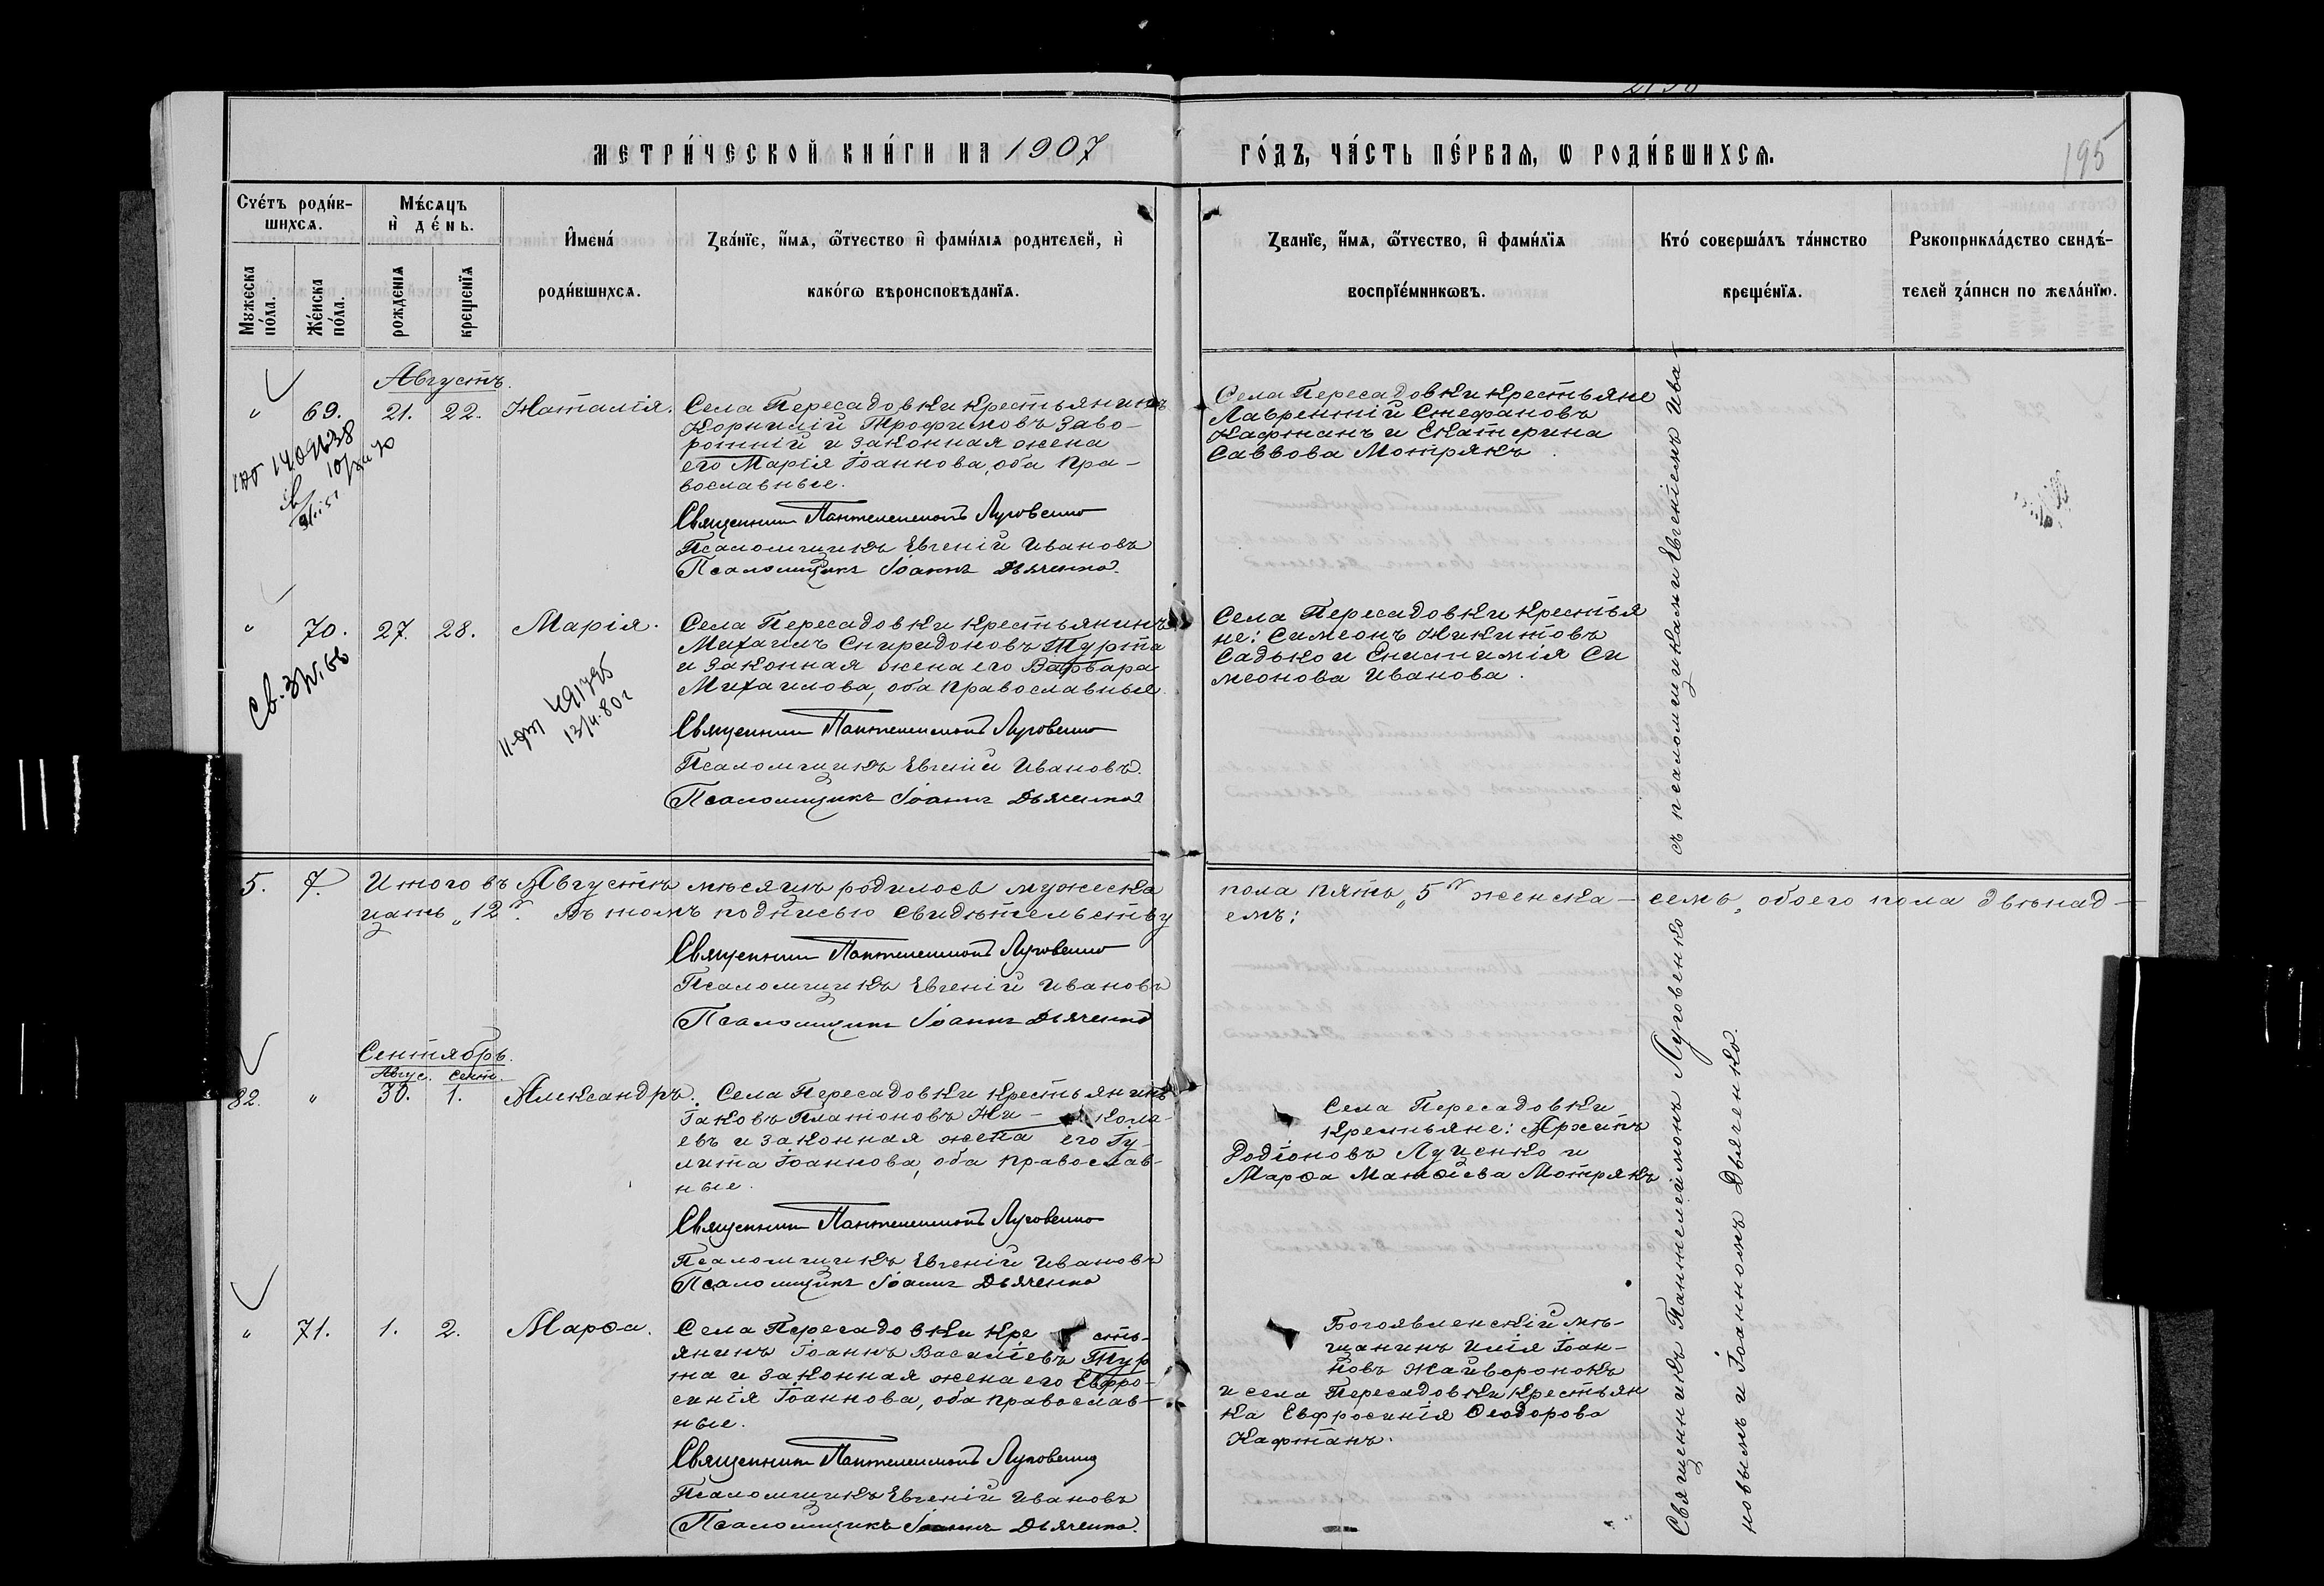 МЕТРИ́ЧЕСКОЙ КНИ́ГИ НА 1907
ГО́ДЪ, ЧА́СТЬ ПЕ́РВАЯ, Ѡ РОДИ́ВШИХСЯ.
195
Сче́тъ роди́в-
шихся.
Мꙋжеска
по́ла.
Же́нска
по́ла.
Мѣ́сяцъ
и҆ де́нь.
рожденїя
крещенїя
И҆мена́
роди́вшихся.
Зва́нїе, и҆́мя, ѻ҆́тчество и҆ фамн́лїя родителей, и҆
како́гѡ вѣроисповѣданїя.
Званїе, и҆́мя, ѻ҆́тчество, и҆ фами́лїя
воспрїе́мникѡвъ.
Кто́ соверша́лъ та́инство
креще́нїя.
Рꙋкоприкла́дство свидѣ́-
телей за́писи по жела́нїю.
Августъ.
" 69. 21. 22. Наталія.
Села Пересадовки крестьянинъ
Корнилій Трофимовъ Заво-
ротній и законная жена
его Марія Іоаннова, оба пра-
вославные.
Священникъ Пантелеимонъ Луговенко
Псаломщикъ Евгеній Ивановъ
Псаломщикъ Іоаннъ Дьяченко.
Села Пересадовки крестьяне
Лаврентій Стефановъ
Кафтанъ и Екатерина
Саввова Мотрякъ.
" 70. 27. 28. Марія.
Села Пересадовки крестьянинъ
Михаилъ Спиридоновъ Турта
и законная жена его Варвара
Михаилова, оба православные.
Священникъ Пантелеимонъ Луговенко
Псаломщикъ Евгеній Ивановъ.
Псаломщикъ Іоаннъ Дьяченко
491795
13/II.80г
Села Пересадовки крестья
не: Симеонъ Никитовъ
Садько и Епистимія Си
меонова Иванова.
5. 7. Итого въ Августѣ мѣсяцѣ родилось мужеска
пола пять „5" женска — семь, обоего пола двѣнад-
цать „12". Въ томъ подписью свидѣтельству
емъ:
Священникъ Пантелеимонъ Луговенко
Псаломщикъ Евгеній Ивановъ
Псаломщикъ Іоаннъ Дьяченко
Сентябрь.
Авгус. Сент.
82. " 30. 1. Александръ.
Села Пересадовки крестьянинъ
Іаковъ Платоновъ Ни- кола-
евъ и законная жена его Іу-
лита Іоаннова, оба православ-
ные.
Священникъ Пантелеимонъ Луговенко
Псаломщикъ Евгеній Ивановъ
Псаломщикъ Іоаннъ Дьяченко
Села Пересадовки
крестьяне: Архипъ
Родіоновъ Луценко и
Марѳа Матѳіева Мотрякъ.
" 71. 1. 2. Марѳа.
Села Пересадовки кре сть-
янинъ Іоаннъ Василіевъ Тур
та и законная жена его Евфро-
синія Іоаннова, оба православ-
ные.
Священникъ Пантелеимонъ Луговенко
Псаломщикъ Евгеній Ивановъ
Псаломщикъ Іоаннъ Дьяченко.
Богоявленскій мѣ-
щанинъ Илія Іоан-
новъ Жайворонокъ
и села Пересадовки крестьян
ка Евфросинія Ѳеодорова
Кафтанъ.
Священникъ Пантелеимонъ Луговенко съ псаломщиками Евгеніемъ Ива-
новымъ и Іоанномъ Дьяченко.